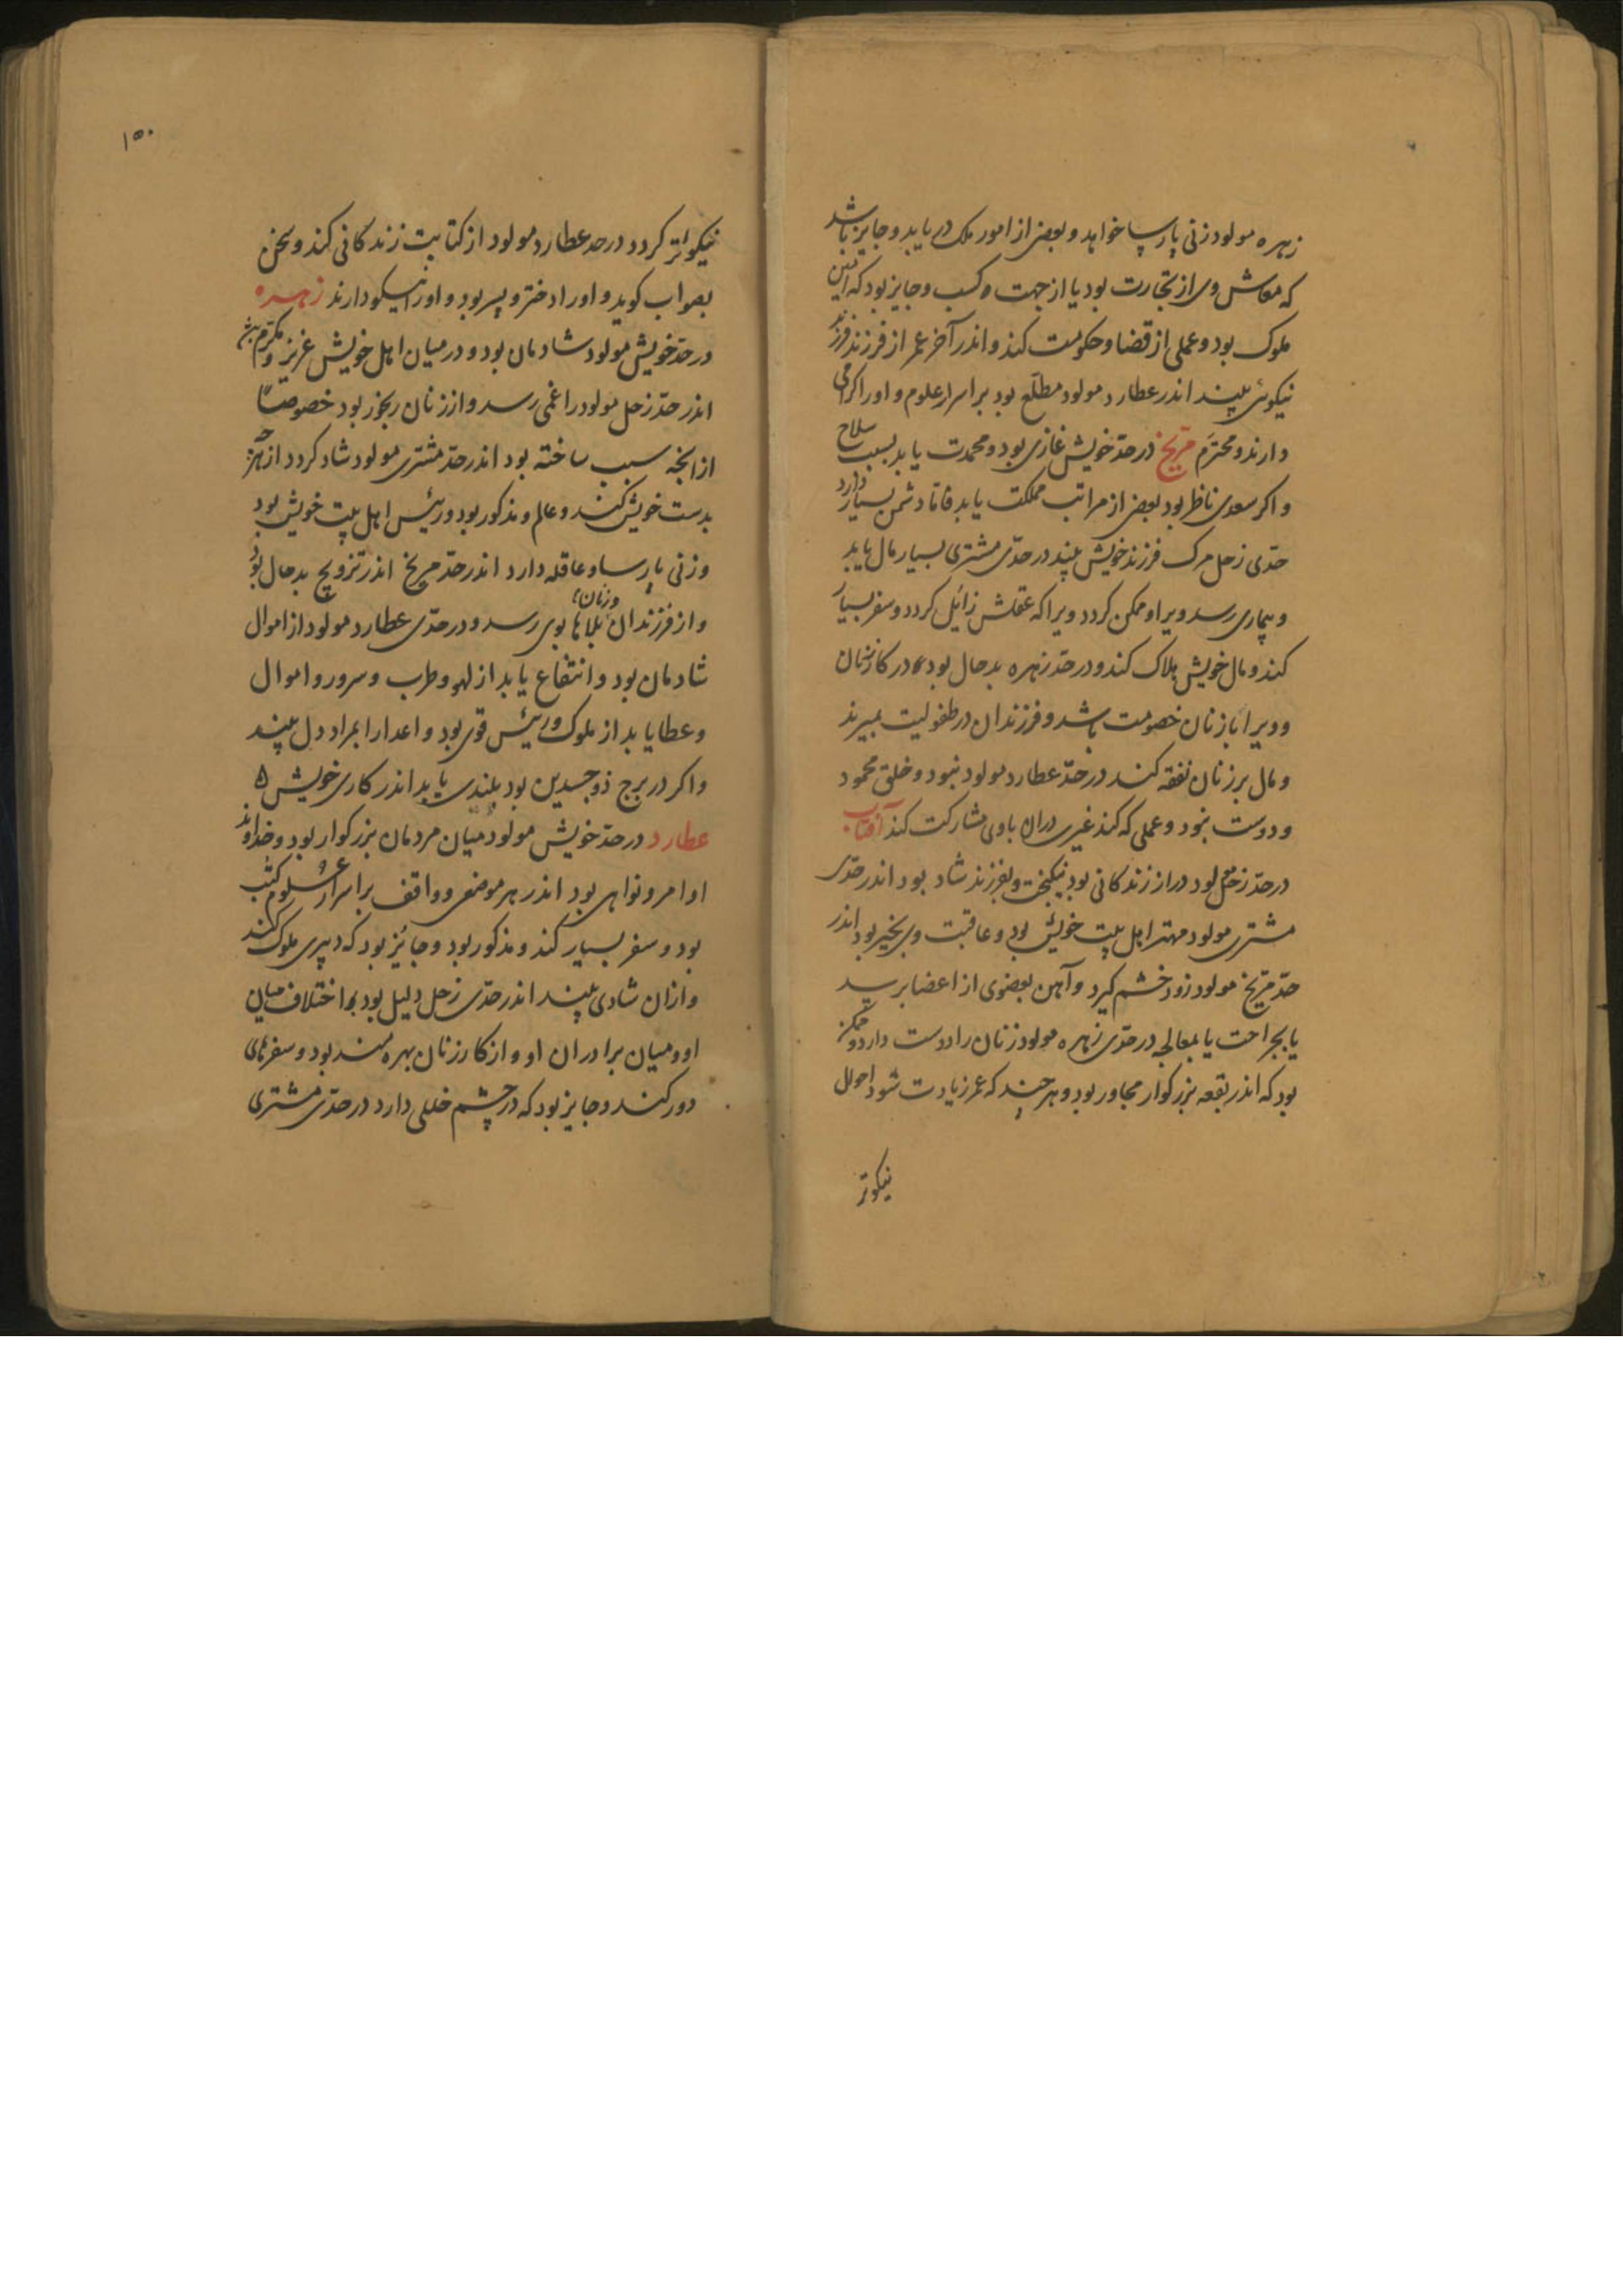 زهره مولود زنی پارسا خواهد و بعض از امور ملک دریابد و جایز باشد
که معاش وی از تجارت بود یا از جهت کسب و جایز بود که امین
ملوک بود و عملی از قضا و حکومت کند و اندر آخر عمر از فرزند فرزند
نیکوئی بیند اندر عطارد مولود مطلع بود بر اسرار علوم و او را کرامی
دارند و محترم مریخ در حدّ خویش غازی بود و محمدت یابد بسبب سلاح
و اکر سعدی ناظر بود بعض از مراتب مملکت یابد فاما دشمن بسیار دارد
حدّی زحل مرک فرزند خویش بیند در حدّی مشتری بسیار مال یابد
و بیماری رسد ویرا و ممکن کردد ویرا که عقلش زائل کردد و سفر بسیار
کند و مال خویش هلاک کند و در حدّ زهره بدحال بود در کار زنان
و ویرا با زنان خصومت باشد و فرزندان در طفولیت بمیرند
و مال بر زنان نفقه کند در حدّ عطارد مولود نبود و خلق محمود
و دوست نبود و عملی که کند غیری دران با وی مشارکت کند آفتاب
در حدّ زحل مولود دراز زندکانی بود نیکبخت و بفرزند شاد بود اندر حدّی
مشتری مولود مهتر اهل بیت خویش بود و عاقبت وی بخیر بود اندر
حدّ مریخ مولود زود خشم کیرد و آهن بعضوی از اعضا برسد
یا بجراحت یا بمعالجه در حدّی زهره مولود زنان را دوست دارد و ممکن
بود که اندر بقعه بزرکوار مجاور بود و هر چند که عمر زیادت شود احوال
نیکوتر
۱۵۰
نیکوتر کردد در حد عطارد مولود از کتابت زندکانی کند و سخن
بصواب کوید و او را دختر و پسر بود و او را نیکو دارند زهره
در حدّ خویش مولود شادمان بود و در میان اهل خویش عزیز و مکرّم باشد
اندر حدّ زحل مولود را غمی رسد و از زنان رنجور بود خصوصاً
از انچه سبب ساخته بود اندر حدّ مشتری مولود شاد کردد از هرچه
بدست خویش کند و عالم و مذکور بود و رئیس اهل بیت خویش بود
و زنی پارسا و عاقله دارد اندر حدّ مریخ اندر تزویج بدحال بود
و از فرزندان و زنان بلاها بوی رسد و در حدّی عطارد مولود از اموال
شادمان بود و انتفاع یابد از لهو و طرب و سرور و اموال
و عطا یابد از ملوک و رئیس قوی بود و اعدا را بمراد دل بیند
و اکر در برج ذوجسدین بود بلندی یابد اندر کاری خویش ه
عطارد در حدّ خویش مولود میان مردمان بزرکوار بود و خداوند
اوامر و نواهی بود اندر هر موضعی و واقف بر اسرار علوم کتب
بود و سفر بسیار کند و مذکور بود و جائز بود که دبیری ملوک کند
و ازان شادی بیند اندر حدّی زحل دلیل بود بر اختلاف میان
او و میان برادران او و از کار زنان بهره مند بود و سفرهای
دور کند و جایز بود که در چشم خللی دارد در حدّی مشتری